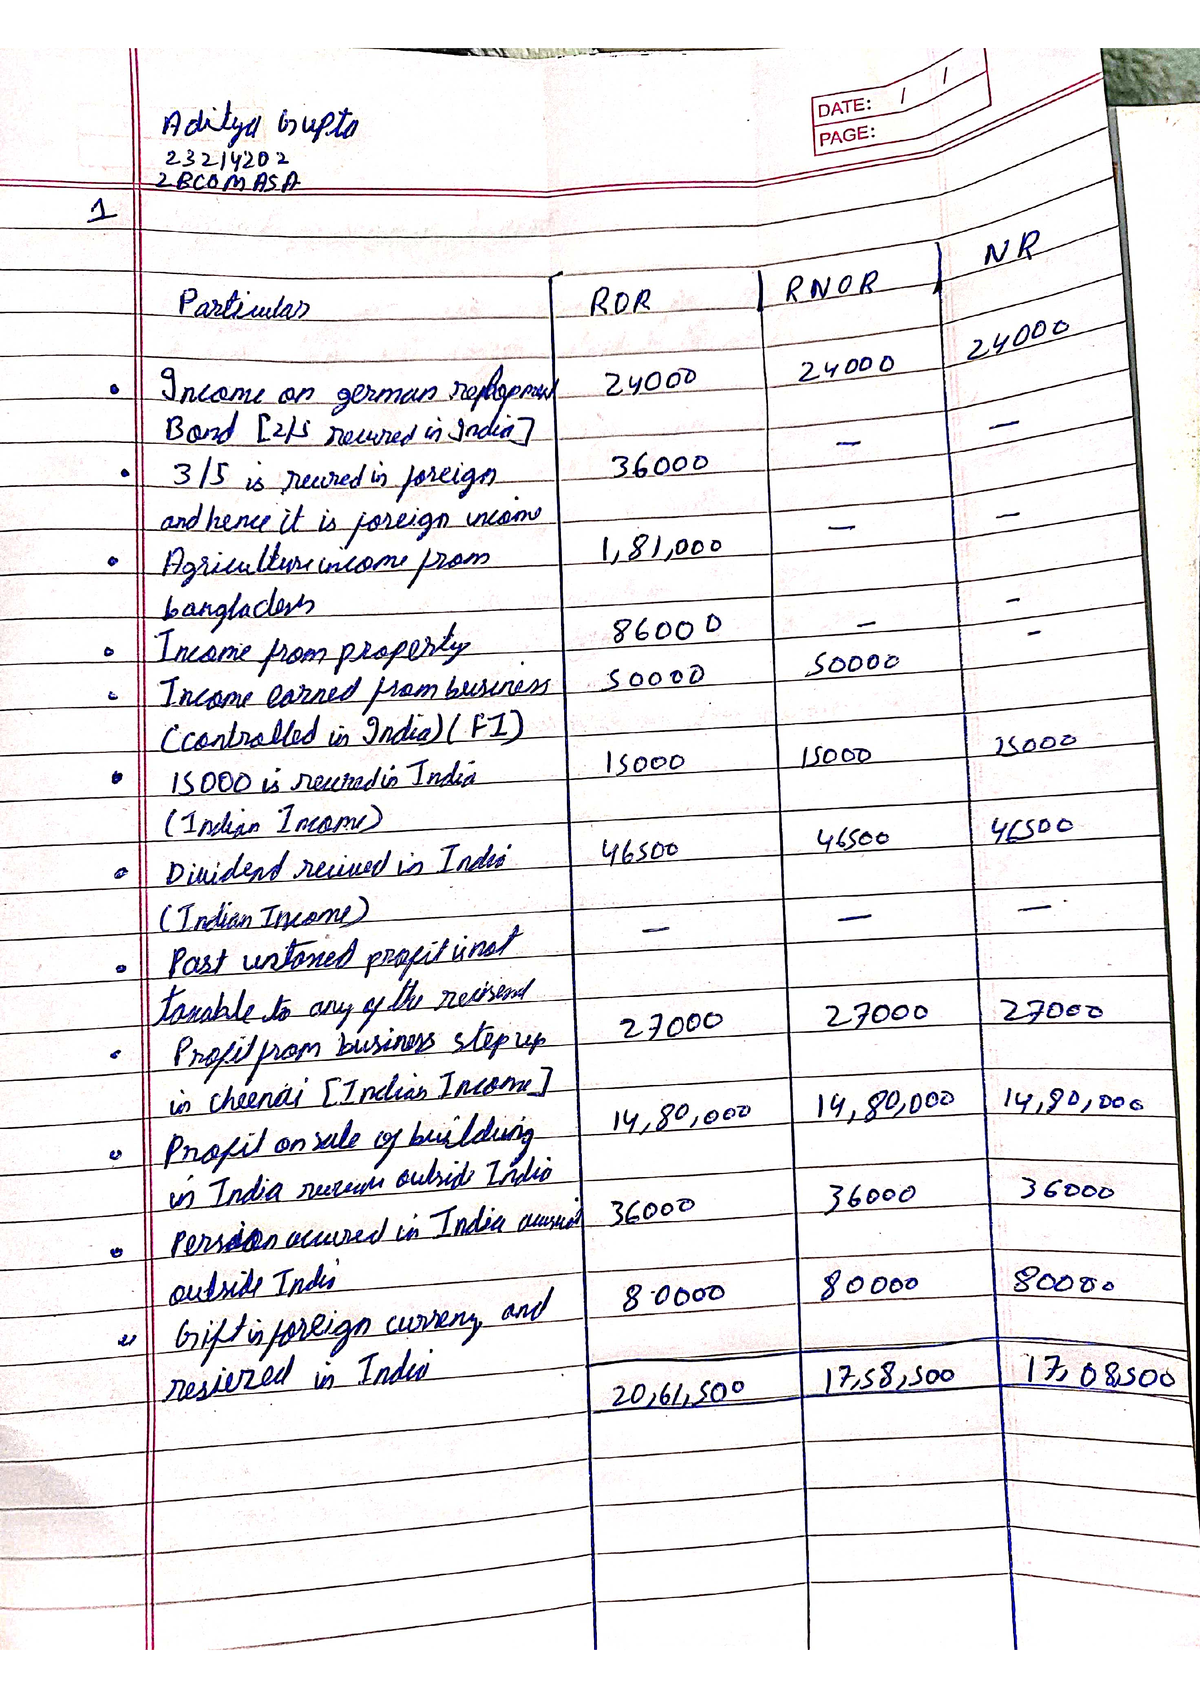 DATE: / /
PAGE:
Aditya Gupta
23214202
2BCOM ASA
1
Particular ROR RNOR NR
Income on german
Bond [2/5 recured in India] 24000 24000 24000
3/5 is recured in foreign 36000 — —
and hence it is foreign income
Agriculture income from 1,81,000 — —
bangladesh
Income from property 86000 — -
Income earned from business 50000 50000 -
(controlled in India) (FI)
15000 is recured in India 15000 15000 15000
(Indian Income)
Dividend recived in India 46500 46500 46500
(Indian Income)
Past untaxed profit is not — — —
taxable to any of the
Profit from business step up 27000 27000 27000
in cheenai [Indian Income]
Profit on sale of building 14,80,000 14,80,000 14,80,000
in India outside India
accured in India 36000 36000 36000
outside India
Gift in foreign curreny and 80000 80000 80000
in India
20,61,500 17,58,500 17,08,500